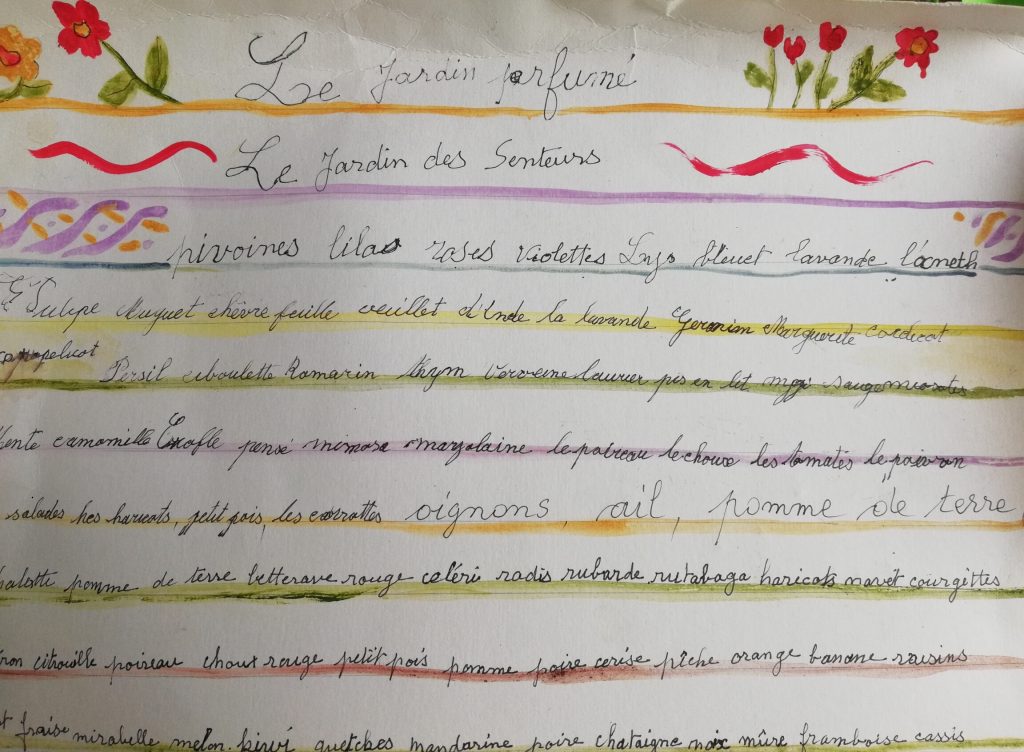 Le Jardin parfumé
Le Jardin des Senteurs
pivoines lilas roses violettes Lys bleuet lavande l'aneth
Tulipe Muguet chèvre feuille oeuillet d'Inde la lavande Geranium Marguerite
Persil ciboulette Romarin thym verveine laurier pis en lit sauge
camomille pensé mimosa marjolaine le poireau le choux les tomates le poivron
salades les haricots, petit pois, les carottes oignons, ail, pomme de terre
pomme de terre betterave rouge céleri radis rubarde rutabaga haricots navet courgettes
citrouille poireau choux rouge petit pois pomme poire cerise pêche orange banane raisins
fraise mirabelle melon. kiwi quetches mandarine poire chataigne noix mûre framboise cassis